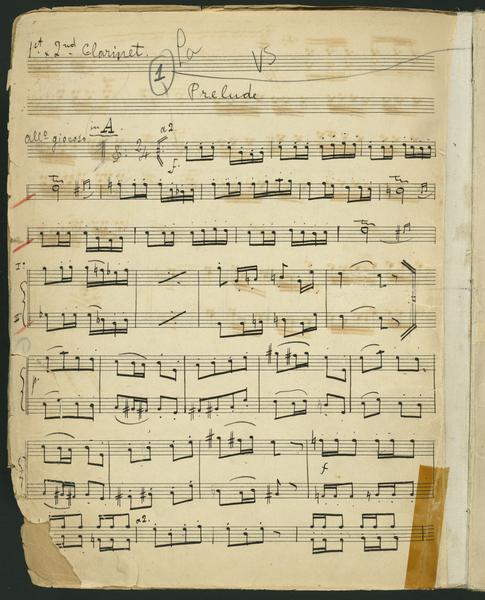 1st & 2nd Clarinet.
1
VS
Prelude
Allo giocoso in A
a2.
f.
tr
tr
tr
tr
I.
II
p.
f
a2.